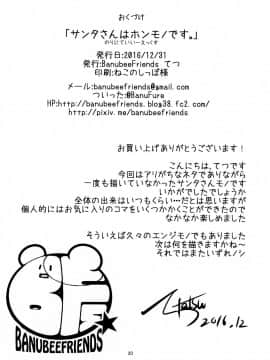 おくづけ
「サンタさんはホンモノです。」
のりにていいーえっくす
発行日:2016/12/31
発行:BanubeeFriends てつ
印刷:ねこのしっぽ様
banubeefriends@gmail.com
ついった:@BanuFure
HP:http://banubeefriends.blog38.fc2.com/
http://pixiv.me/banubeefriends
お買い上げありがとうございます!
こんにちは、てつです
今回はアリがちなネタでありながら
一度も描いていなかったサンタさんモノです
いかがでしたでしょうか
全体の出来はいつもくらい…だとは思いますが
個人的にはお気に入りのコマをいくつかかくことができたので
なかなか楽しめました
そういえば久々のエンジモノでもありました
次は何を描きますかね~
それではまたいずれノシ
BF
BANUBEEFRIENDS
Tetsu
2016.12